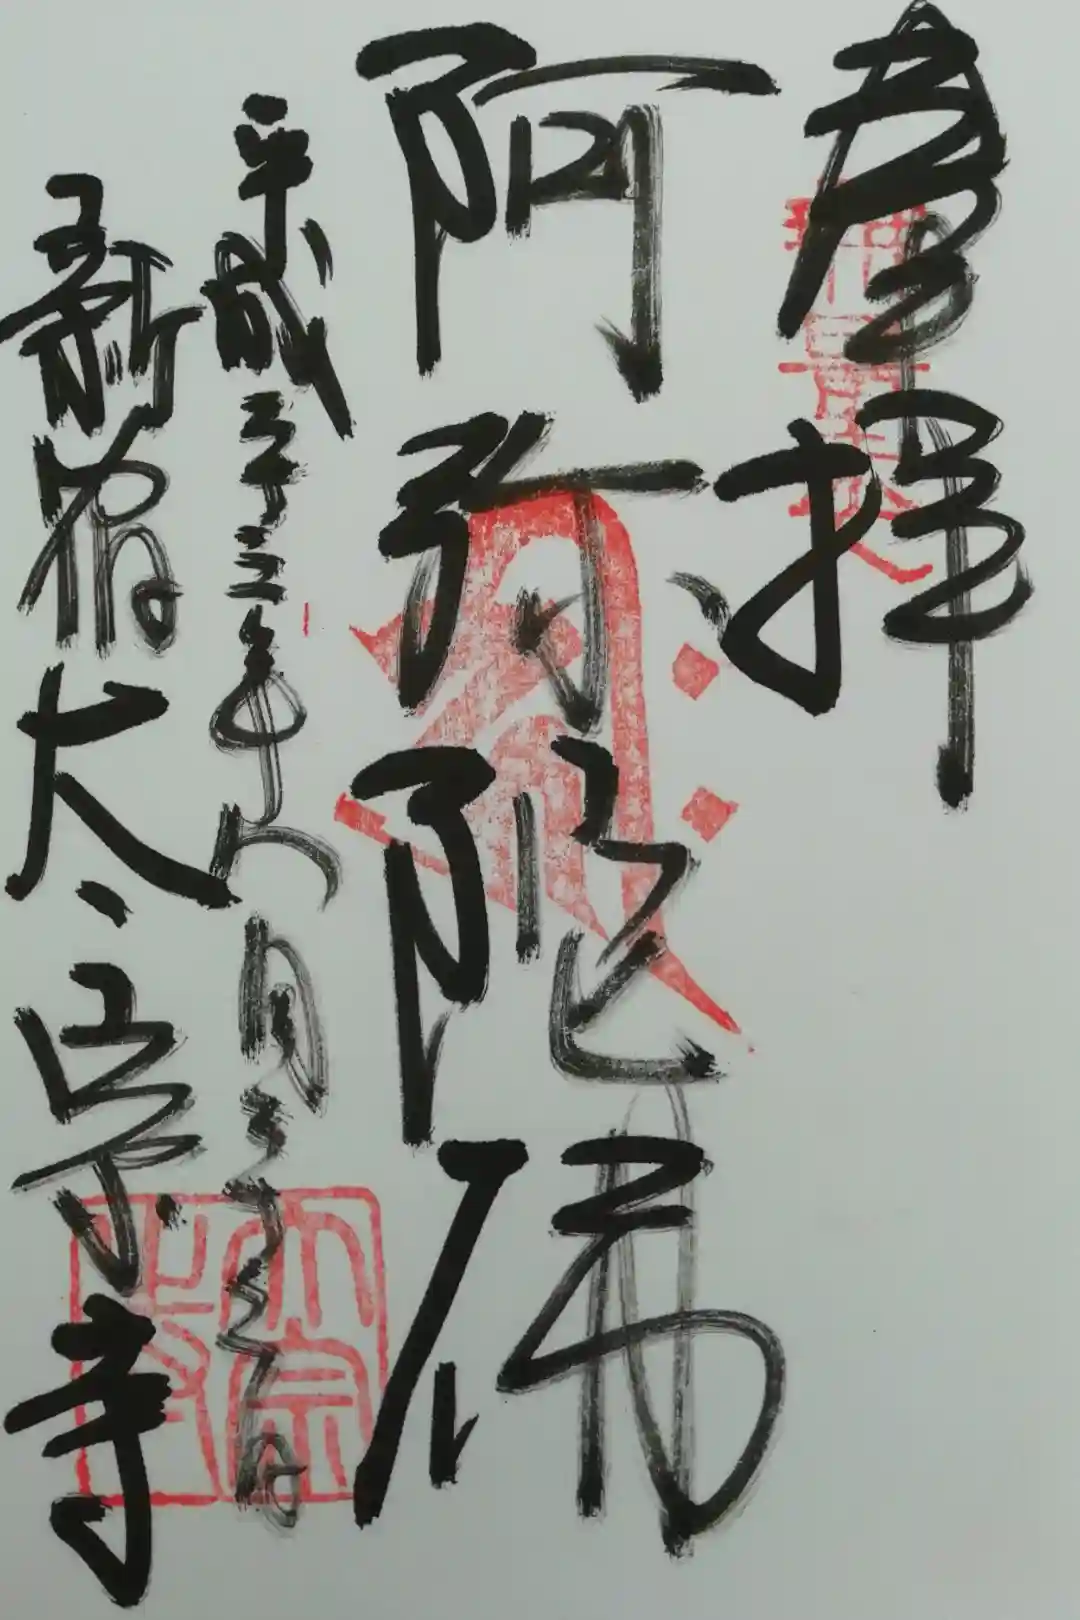 奉拝
阿弥陀佛
平成二十三年八月二十日
新宿太宗寺